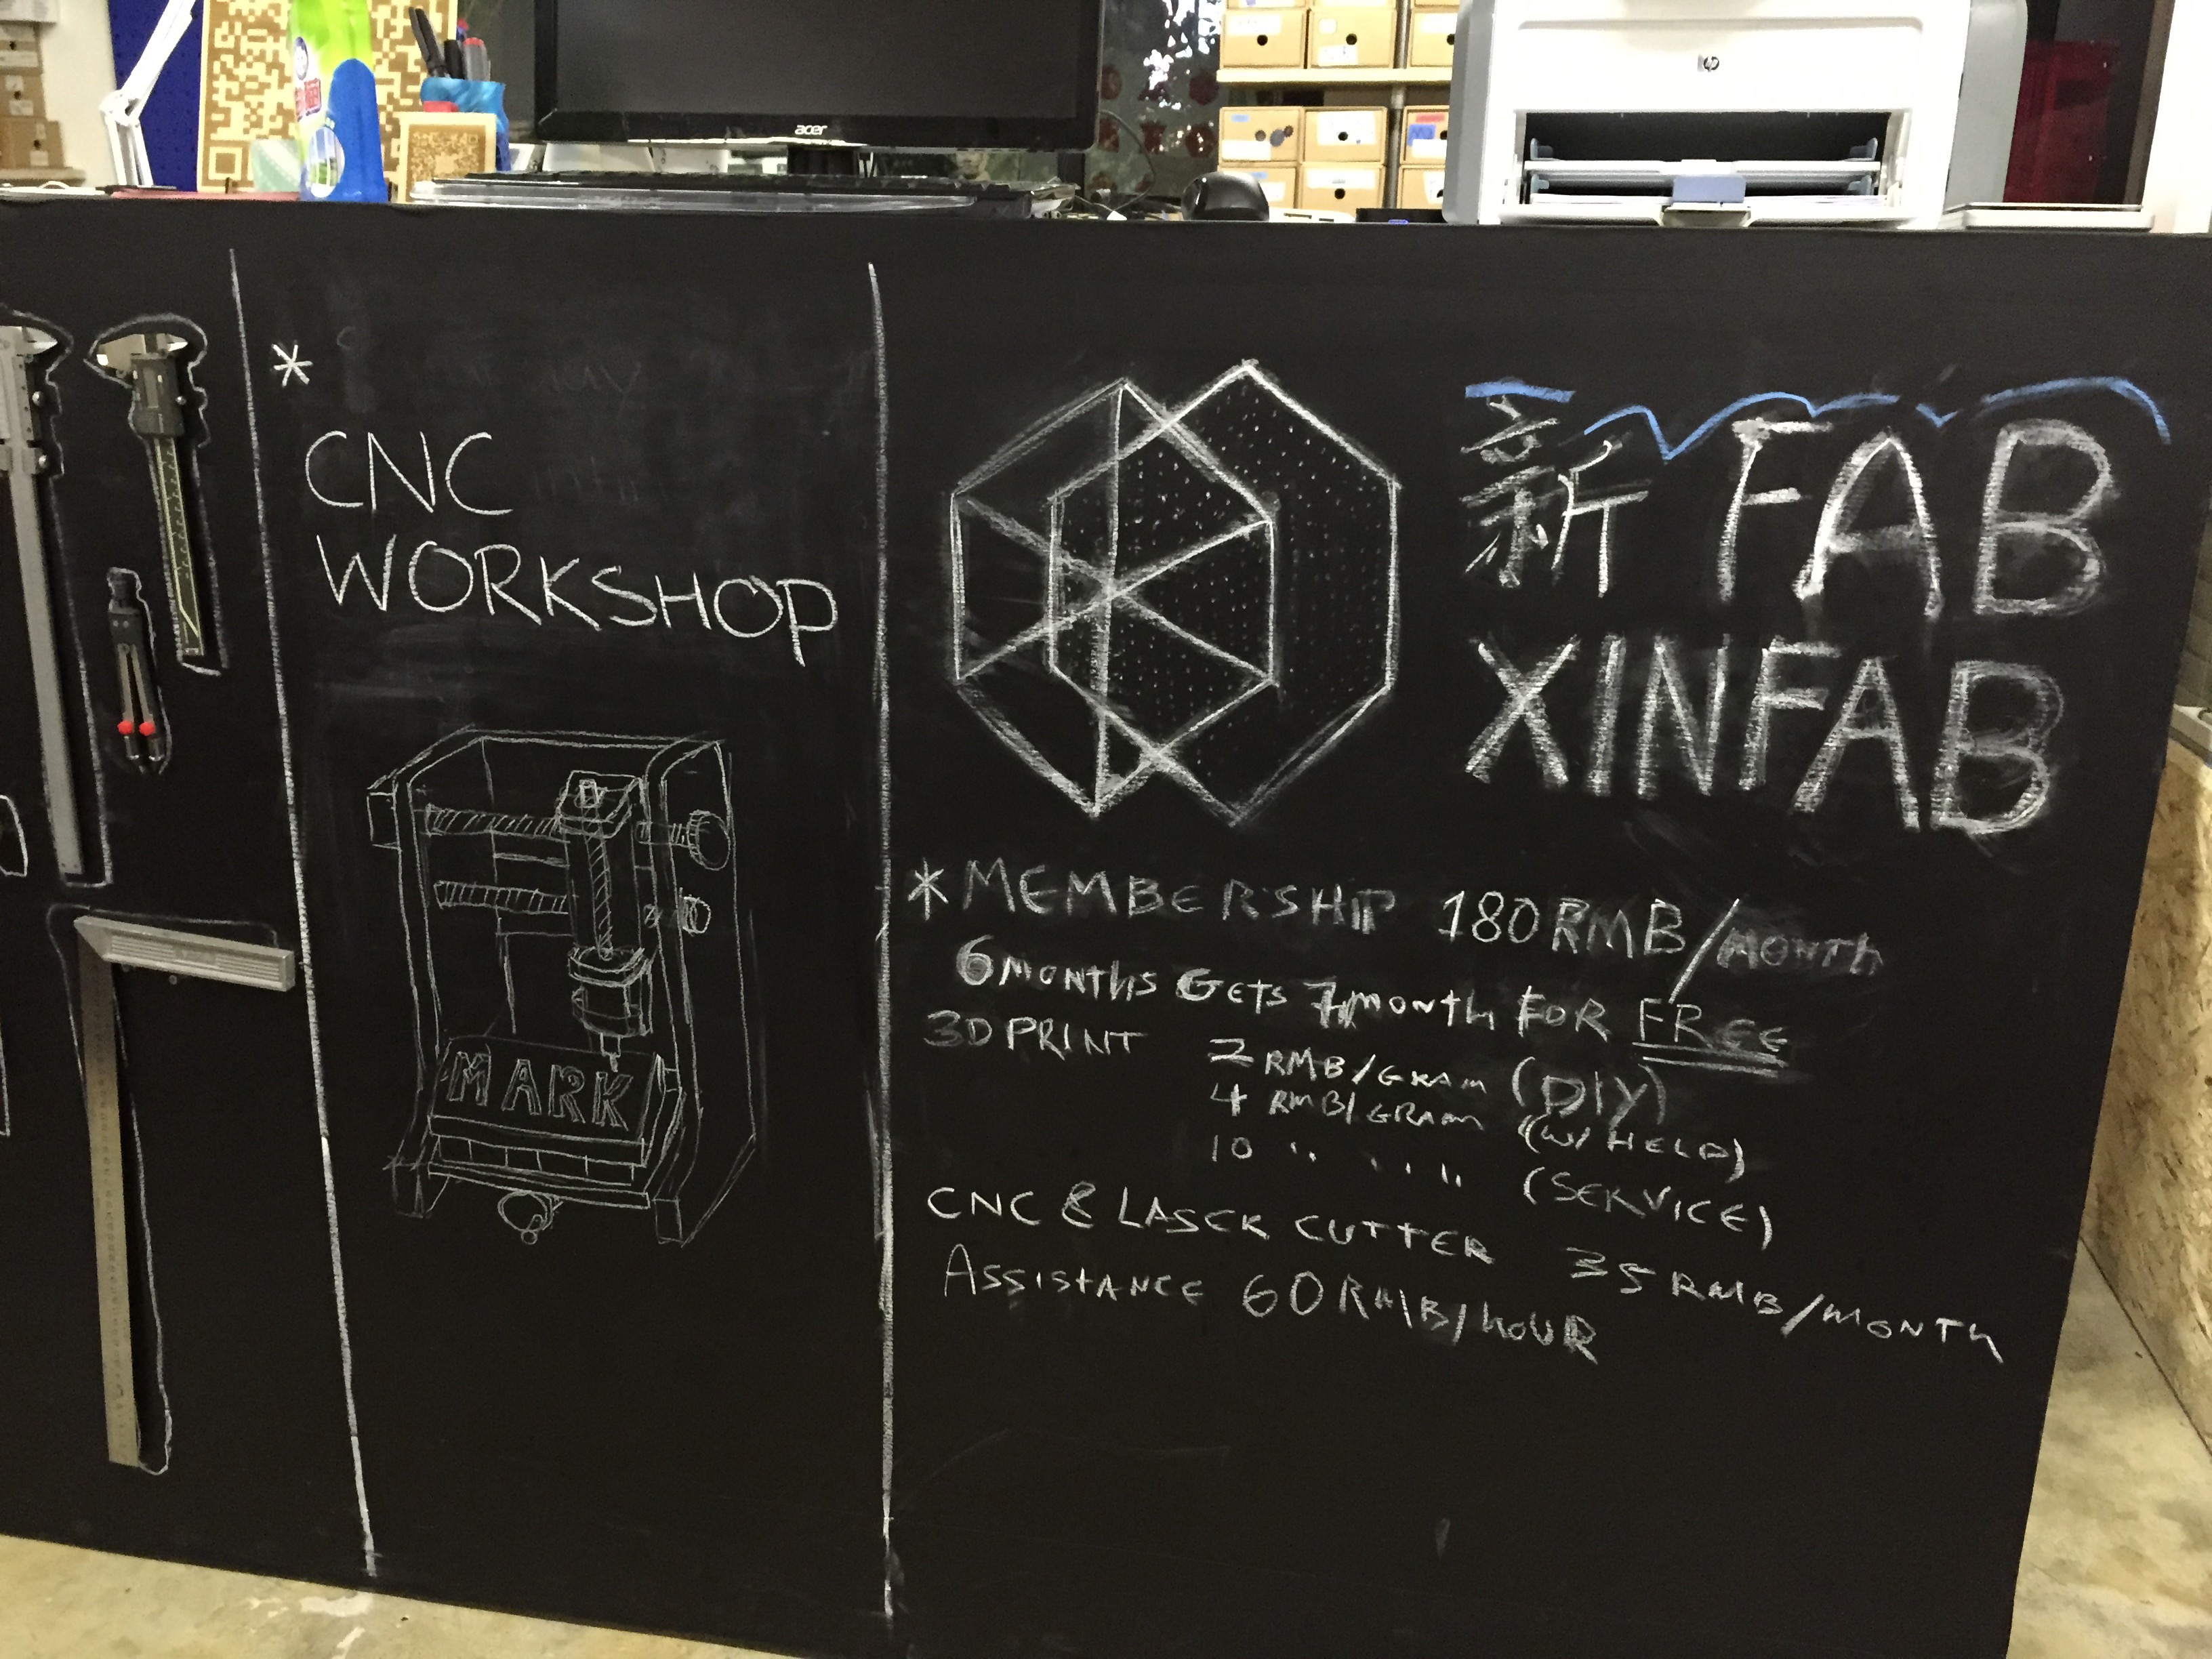 acer
hp
*
CNC
WORKSHOP
MARK
新 FAB
XINFAB
* MEMBERSHIP 180 RMB/MONTH
6 MONTHS GETS 7 MONTH FOR FREE
3D PRINT 2 RMB/GRAM (DIY)
4 RMB/GRAM (W/ HELP)
10 " " (SERVICE)
CNC & LASER CUTTER 35 RMB/MONTH
ASSISTANCE 60 RMB/HOUR